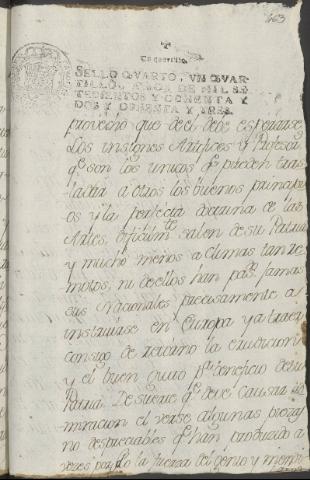 463
Un quartillo.
SELLO QVARTO, VN QVAR-
TILLO, AÑOS DE MIL SE-
TECIENTOS Y OCHENTA Y
DOS Y OCHENTA Y TRES.
provecho que de el debe esperarse.
Los insignes Artifices y Profesores
q.e son los unicos q.e pueden tras-
ladar a otros los buenos principi-
os y la perfecta doctrina de las
Artes, dificilm.te salen de su Patria
y mucho menos a climas tan re-
motos, ni de ellos han pas.do jamas
sus Nacionales precisamente a
instruirse en Europa y a traer
consigo de retorno la erudicion
y el buen gusto p.a beneficio de su
Patria. De suerte q.e deve causar ad-
miracion el verse algunas obras
no despreciables q.e han producido a
veces por solo la fuerza del genio y